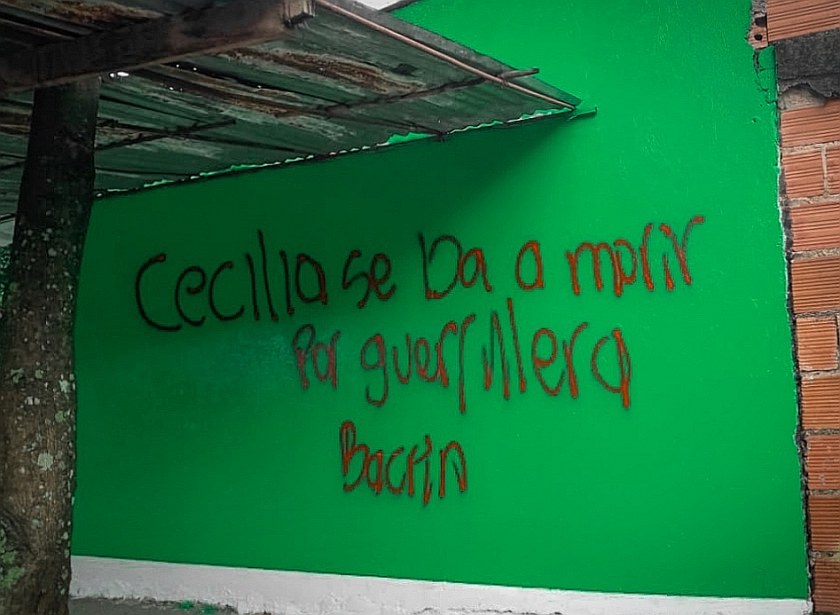 Cecilia se ba a morir
Por guerrillera
Bacrin